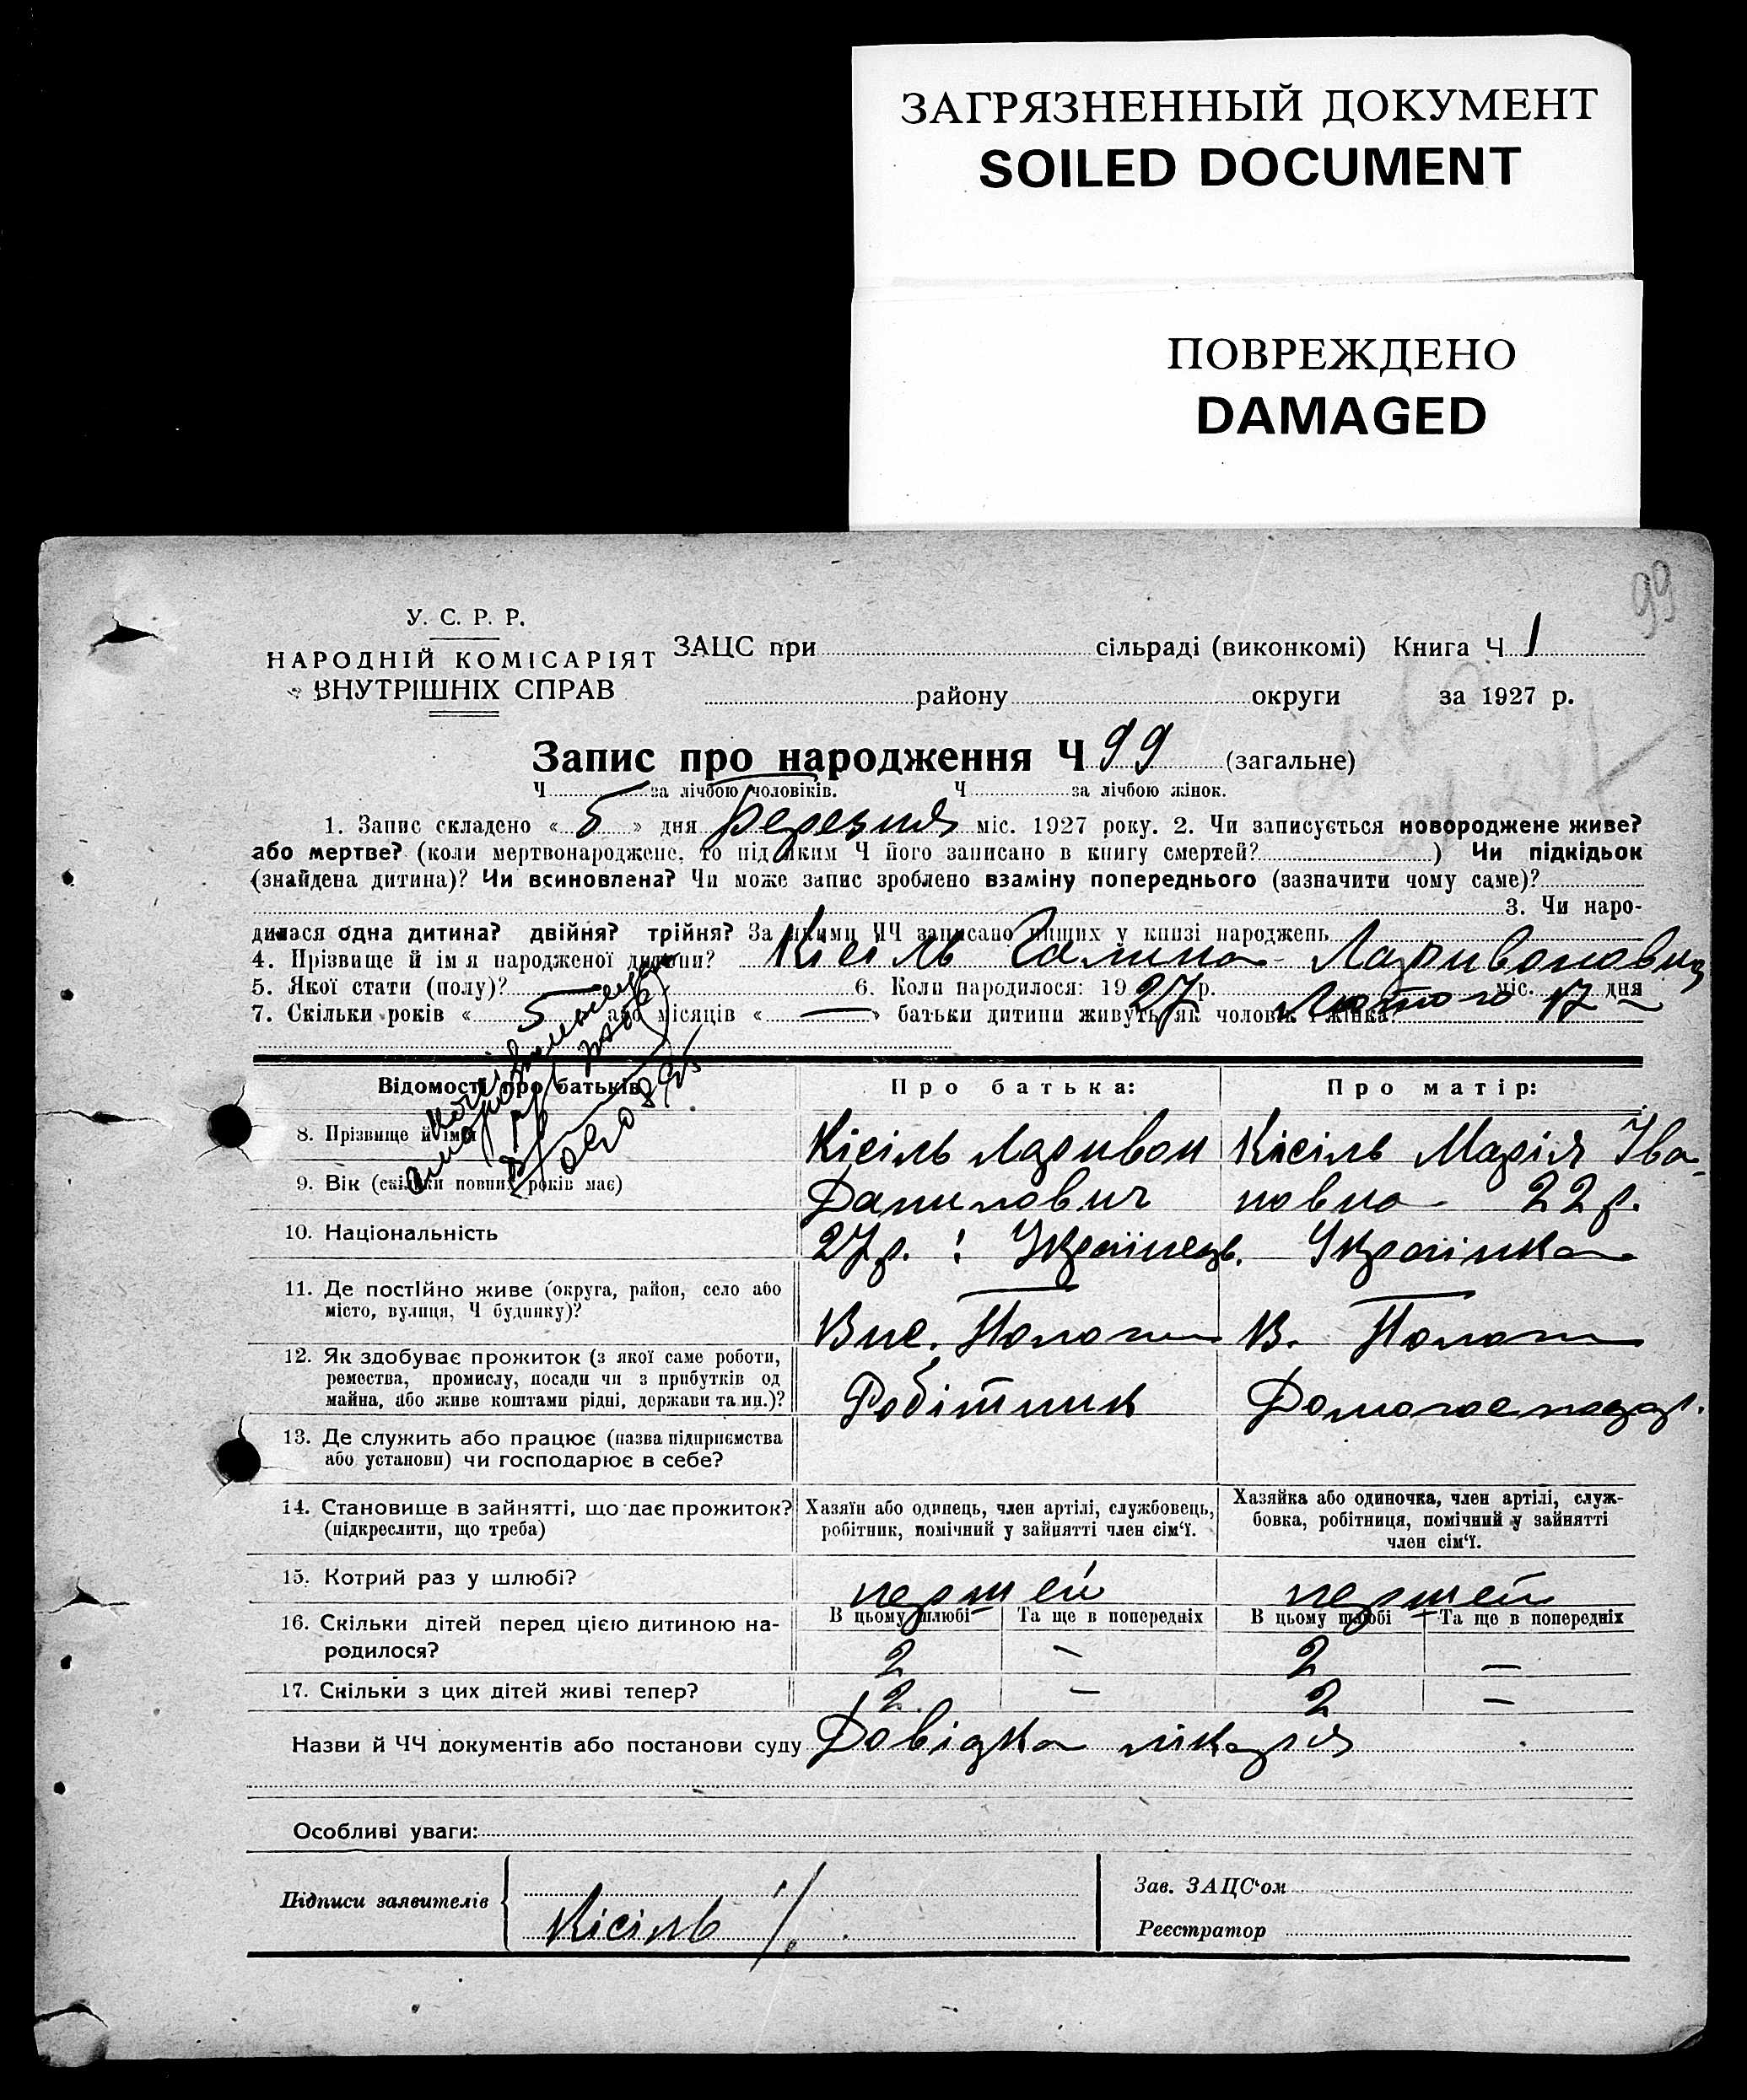 ЗАГРЯЗНЕННЫЙ ДОКУМЕНТ
SOILED DOCUMENT
ПОВРЕЖДЕНО
DAMAGED
99
У. С. Р. Р.
НАРОДНІЙ КОМІСАРІЯТ
ВНУТРІШНІХ СПРАВ
ЗАЦС при сільраді (виконкомі) Книга Ч 1
району округи за 1927 р.
Запис про народження Ч 99 (загальне)
Ч за лічбою чоловіків. Ч за лічбою жінок.
1. Запис складено « 5 » дня Березня міс. 1927 року. 2. Чи записується новороджене живе?
або мертве? (коли мертвонароджене, то під яким Ч його записано в книгу смертей? ) Чи підкідьок
(знайдена дитина)? Чи всиновлена? Чи може запис зроблено взаміну попереднього (зазначити чому саме)?
3. Чи наро-
дилася одна дитина? двійня? трійня? За якими ЧЧ записано инших у книзі народжень
4. Прізвище й ім я народженої дитини? Кісіль Галина Ларивоновна
5. Якої стати (полу)? 6. Коли народилося: 1927 р. Лютого міс. 17 дня
7. Скільки років « 5 » або місяців « — » батьки дитини живуть як чоловік і жінка?
Відомості про батьків Про батька: Про матір:
8. Прізвище й імя Кісіль Ларивон Кісіль Марія Іва-
9. Вік (скільки повних років має) Данилович новна 22 р.
10. Національність 27 р. : Українець. Українка
11. Де постійно живе (округа, район, село або
місто, вулиця, Ч будинку)? Вис. Пологи В. Пологи
12. Як здобуває прожиток (з якої саме роботи,
ремества, промислу, посади чи з прибутків од
майна, або живе коштами рідні, держави та ин.)? Робітник Домогосподар.
13. Де служить або працює (назва підприємства
або установи) чи господарює в себе?
14. Становище в зайнятті, що дає прожиток?
(підкреслити, що треба)
Хазяїн або одинець, член артілі, службовець,
робітник, помічний у зайнятті член сім'ї.
Хазяйка або одиночка, член артілі, служ-
бовка, робітниця, помічний у зайнятті
член сім'ї.
15. Котрий раз у шлюбі? першей першей
16. Скільки дітей перед цією дитиною на-
родилося?
В цьому шлюбі Та ще в попередніх В цьому шлюбі Та ще в попередніх
2 — 2 —
17. Скільки з цих дітей живі тепер? 2 — 2 —
Назви й ЧЧ документів або постанови суду Довідка лікаря
Особливі уваги:
Підписи заявителів Кісіль
Зав. ЗАЦС'ом
Реєстратор